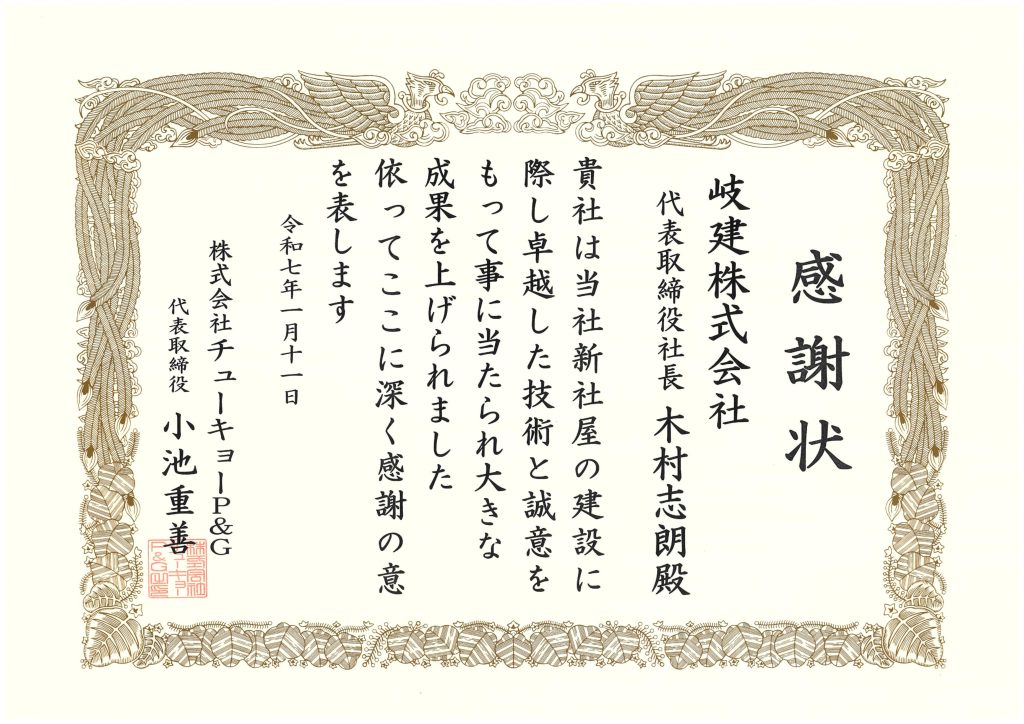 感謝状
岐建株式会社
代表取締役社長 木村志朗殿
貴社は当社新社屋の建設に
際し卓越した技術と誠意を
もって事に当たられ大きな
成果を上げられました
依ってここに深く感謝の意
を表します
令和七年一月十一日
株式会社チューキョーP&G
代表取締役 小池重善